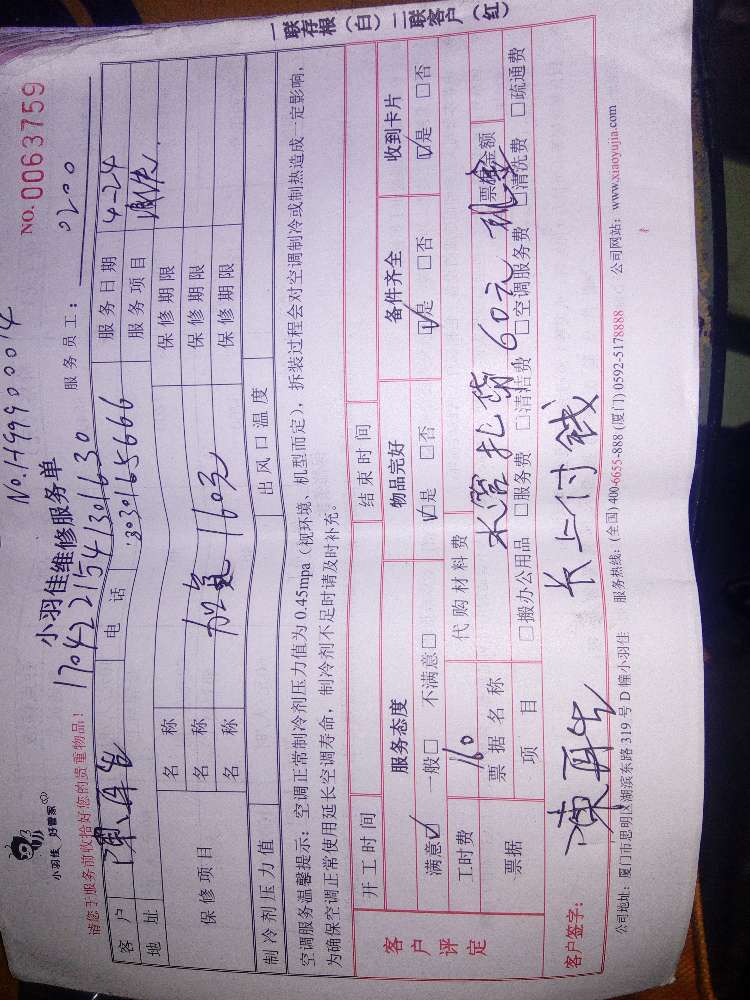 一联存根（白）二联客户（红）
No.1499900014
小羽佳 好管家
小羽佳维修服务单
NO.0063759
1704221541301630
请您于服务前收拾好您的贵重物品！
服务员工：0200
客户 陈再生 电话 18030165666 服务日期 4-24
地址 服务项目
保修项目 名称 保修期限
名称 加氟160元 保修期限
名称 保修期限
制冷剂压力值 出风口温度
空调服务温馨提示：空调正常制冷剂压力值为0.45mpa（视环境、机型而定），拆装过程会对空调制冷或制热造成一定影响，
为确保空调正常使用延长空调寿命，制冷剂不足时请及时补充。
开工时间 结束时间
客户评定 服务态度 物品完好 备件齐全 收到卡片
满意☑ 一般□ 不满意□ ☑是 □否 ☑是 □否 ☑是 □否
工时费 160 代购材料费
票据 票据名称 水管扎带60元 现金 票据金额
项目 □搬办公用品 □服务费 □清洁费 □空调服务费 □清洗费 □疏通费
客户签字：陈再生 长上付钱
公司地址：厦门市思明区湖滨东路319号D幢小羽佳 服务热线：(全国) 400-6655-888 (厦门) 0592-5178888 公司网站：www.xiaoyujia.com